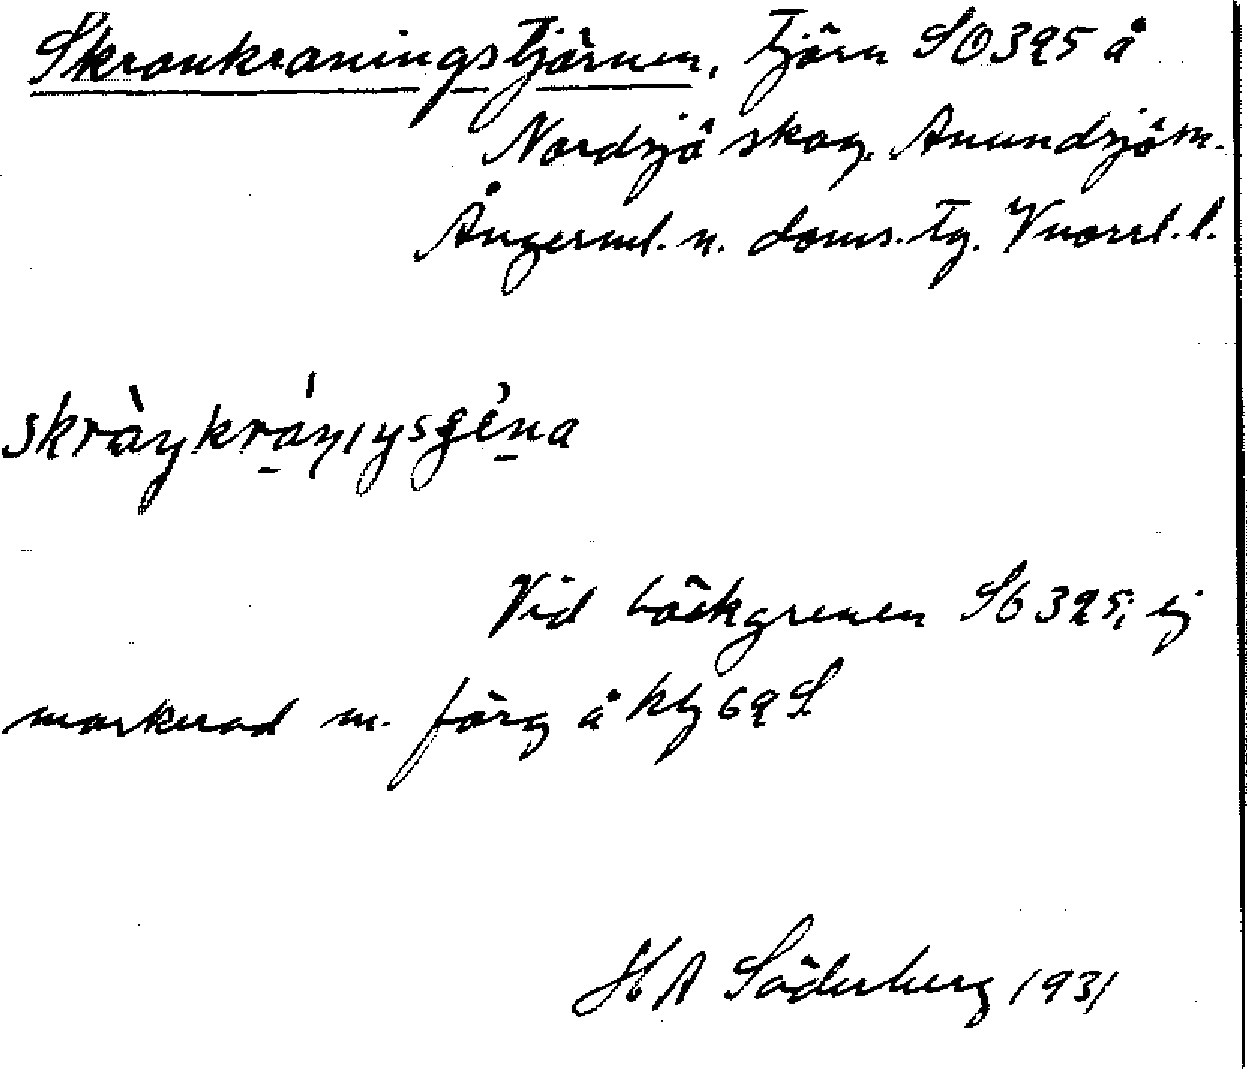 Skrankraningstjärnen, tjärn SO 325 å
Nordsjö skog. Anundsjö sn.
Ångerml. n. doms. tg. Vnorrl. l.
skràŋkrá̱ŋıŋsǥé̱na
Vid bäckgrenen SO 325; ej
markerad m. färg å kbl 69 S.
H A Söderberg 1931